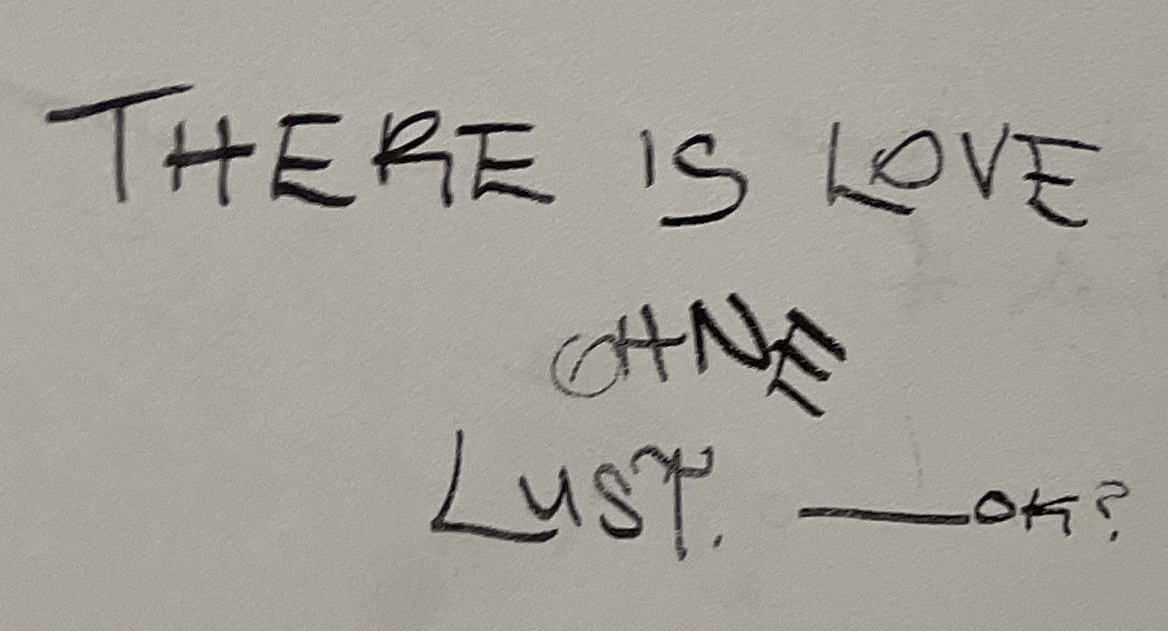 THERE IS LOVE
OHNE
LUST. —OK?